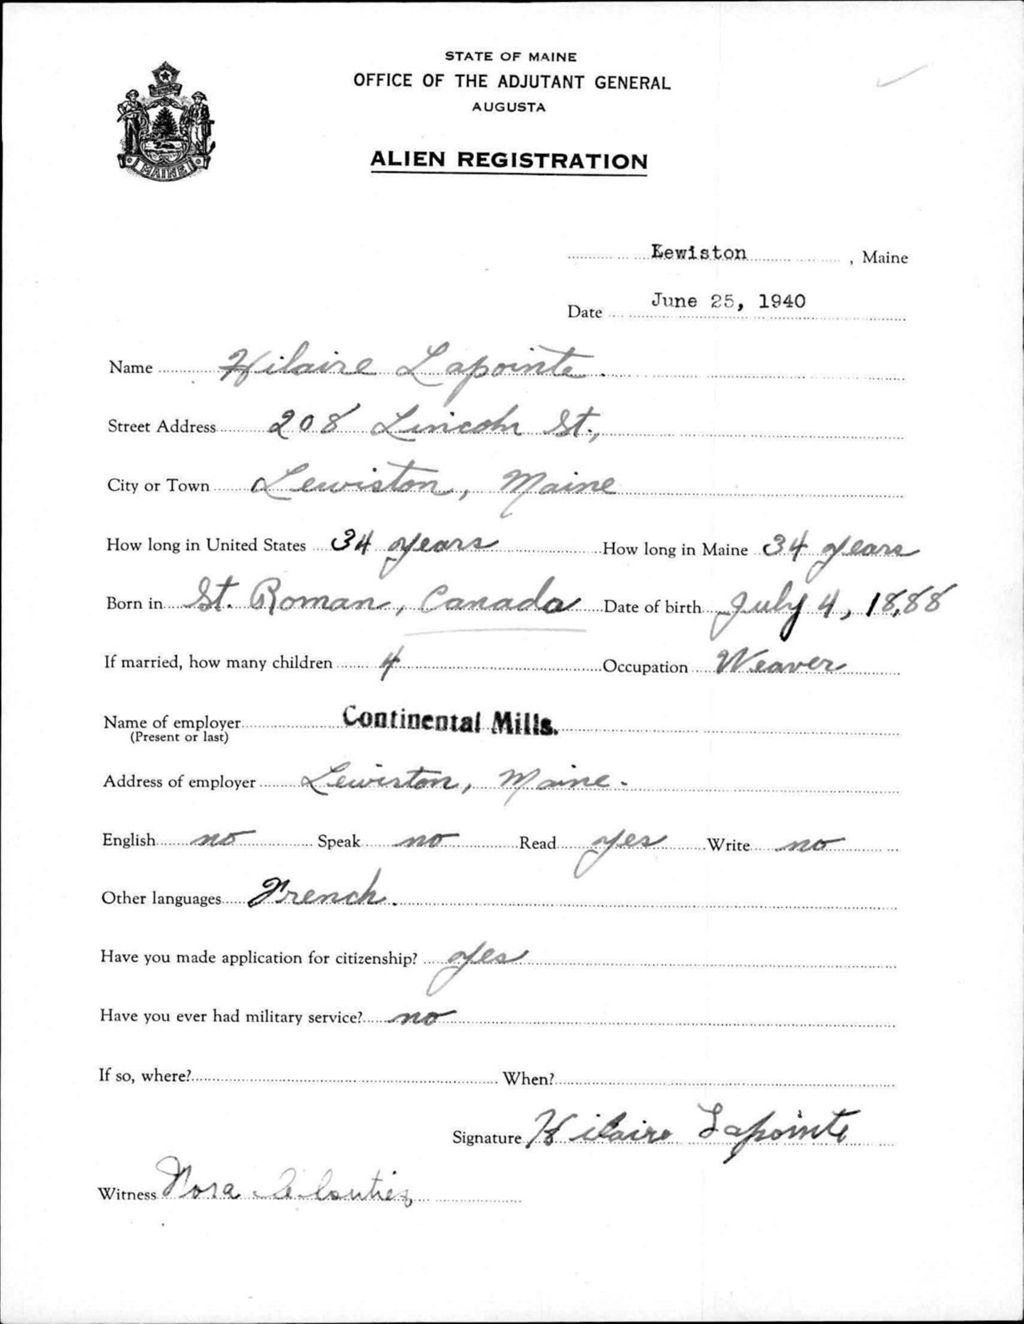 STATE OF MAINE
OFFICE OF THE ADJUTANT GENERAL
AUGUSTA
ALIEN REGISTRATION
MAINE
Lewiston, Maine
Date June 25, 1940
Name Hilaire Lapointe.
Street Address 208 Lincoln St.,
City or Town Lewiston, Maine
How long in United States 34 years How long in Maine 34 years
Born in St. Roman, Canada Date of birth July 4, 1888
If married, how many children 4 Occupation Weaver
Name of employer Continental Mills.
(Present or last)
Address of employer Lewiston, Maine.
English no Speak no Read yes Write no
Other languages French.
Have you made application for citizenship? yes
Have you ever had military service? no
If so, where? When?
Signature Hilaire Lapointe
Witness Nora